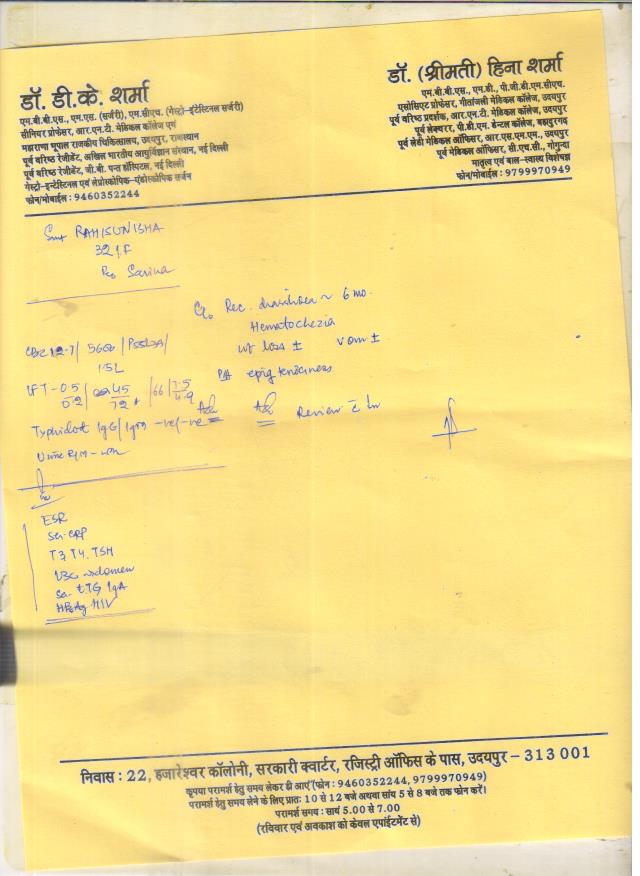 डॉ. डी.के. शर्मा
एम.बी.बी.एस., एम.एस. (सर्जरी), एम.सीएच. (गैस्ट्रो-इंटेस्टिनल सर्जरी)
सीनियर प्रोफेसर, आर.एन.टी. मेडिकल कॉलेज एवं
महाराणा भूपाल राजकीय चिकित्सालय, उदयपुर, राजस्थान
पूर्व वरिष्ठ रेजीडेंट, अखिल भारतीय आयुर्विज्ञान संस्थान, नई दिल्ली
पूर्व वरिष्ठ रेजीडेंट, जी.बी. पन्त हॉस्पिटल, नई दिल्ली
गेस्ट्रो-इन्टेस्टिनल एवं लेप्रोस्कोपिक-एंडोस्कोपिक सर्जन
फोन/मोबाईल : 9460352244
डॉ. (श्रीमती) हिना शर्मा
एम.बी.बी.एस., एम.डी., पी.जी.डी.एम.सीएच.
एसोसिएट प्रोफेसर, गीतांजली मेडिकल कॉलेज, उदयपुर
पूर्व वरिष्ठ प्रदर्शक, आर.एन.टी. मेडिकल कॉलेज, उदयपुर
पूर्व लेक्चरर, पी.डी.एम. डेन्टल कॉलेज, बहादुरगढ़
पूर्व लेडी मेडिकल ऑफिसर, आर.एस.एम.एम., उदयपुर
पूर्व मेडिकल ऑफिसर, सी.एच.सी., गोगुन्दा
मातृत्व एवं बाल-स्वास्थ्य विशेषज्ञ
फोन/मोबाईल : 9799970949
Smt RAHISUNISHA
32/F
C/o Rec. diarrhoea ~ 6 mo.
Hematochezia
wt loss ± vom ±
P/A epig tenderness
CBC 12.7/ 5600
1.5L
LFT - 0.5
0.2
45
72
Typhidot IgG/IgM -ve/-ve
Adv Review
Urine R/M -
ESR
Ser. CRP
T3, T4, TSH
USG abdomen
Sr. tTG IgA
HBsAg HIV
निवास : 22, हजारेश्वर कॉलोनी, सरकारी क्वार्टर, रजिस्ट्री ऑफिस के पास, उदयपुर - 313 001
कृपया परामर्श हेतु समय लेकर ही आएं (फोन : 9460352244, 9799970949)
परामर्श हेतु समय लेने के लिए प्रातः 10 से 12 बजे अथवा सांय 5 से 8 बजे तक फोन करें।
परामर्श समय : सायं 5.00 से 7.00
(रविवार एवं अवकाश को केवल एपाईंटमेंट से)